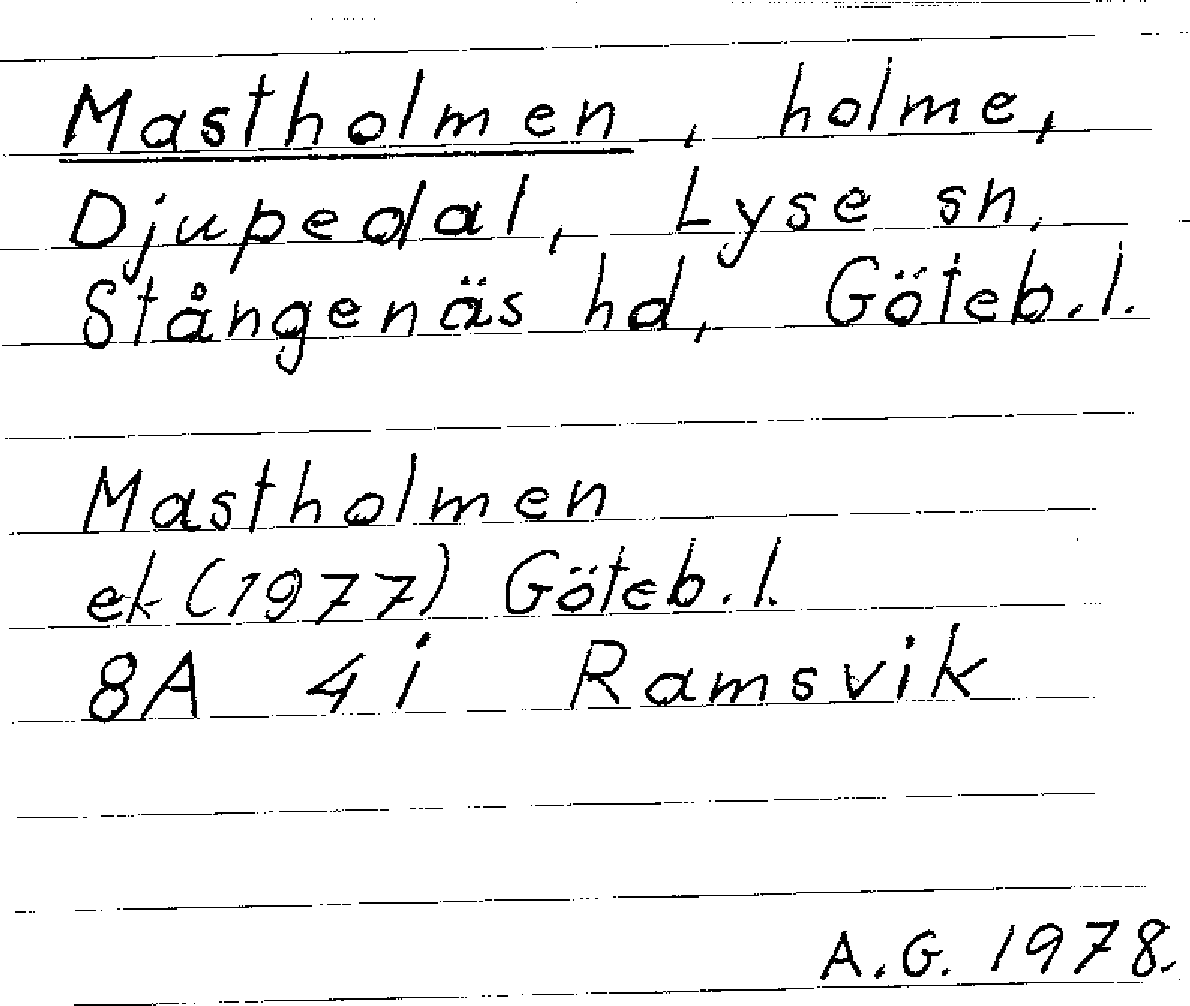 Mastholmen, holme,
Djupedal, Lyse sn,
Stångenäs hd, Göteb.l.
Mastholmen
ek (1977) Göteb.l.
8A 4i Ramsvik
A.G. 1978.